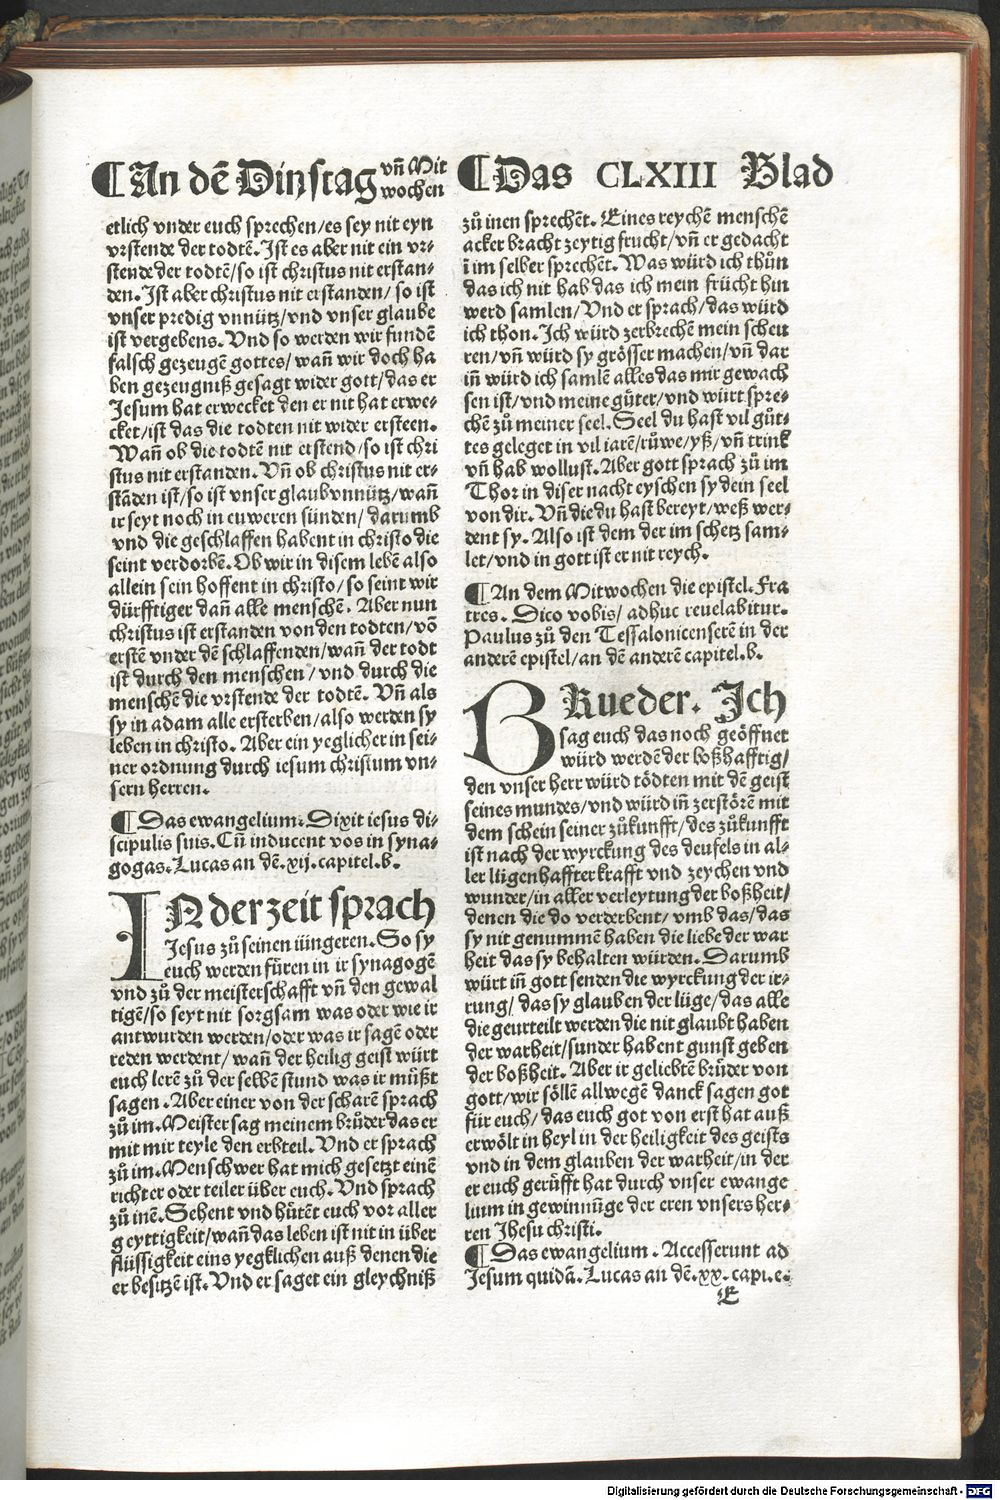 ¶An dē Dinstag vn̄ Mit
wochen
etlich vnder euch sprechen/es sey nit eyn
vrstende der todtē. Ist es aber nit ein vr⸗
stende der todtē/so ist christus nit erstan⸗
den. Ist aber christus nit erstanden/ so ist
vnser predig vnnütz/vnd vnser glaube
ist vergebens. Vnd so werden wir fundē
falsch gezeugē gottes/ wan̄ wir doch ha
ben gezeugniß gesagt wider gott/das er
Jesum hat erwecket den er nit hat erwe⸗
cket/ist das die todten nit wider ersteen.
Wan̄ ob die todtē nit erstend/so ist chri
stus nit erstanden. Vn̄ ob christus nit er⸗
stādenist/so ist vnser glaub vnnütz/wan̄
ir seyt noch in euweren sünden/ darumb
vnd die geschlaffen habent in christo die
seint verdorbē. Ob wir in disem lebē also
allein sein hoffent in christo/so seint wir
dürfftiger dan̄ alle menschē. Aber nun
christus ist erstanden von den todten/vō
erstē vnder dē schlaffenden/wan̄ der todt
ist durch den menschen/vnd durch die
menschē die vrstende der todtē. Vn̄ als
sy in adam alle ersterben/also werden sy
leben in christo. Aber ein yeglicher in sei⸗
ner ordnung durch iesum christum vn⸗
sern herren.
¶Das ewangelium. Dixit iesus di⸗
scipulis suis. Cū inducent vos in syna⸗
gogas. Lucas an dē.xij.capitel.b.
IN der zeit sprach
Jesus zů seinen iüngeren. So sy
euch werden füren in ir synagogē
vnd zů der meisterschafft vn̄ den gewal
tigē/so seyt nit sorgsam was oder wie ir
antwurden werden/oder was ir sagē oder
reden werdent/ wan̄ der heilig geist würt
euch lerē zů der selbē stund was ir müßt
sagen. Aber einer von der scharē sprach
zů im. Meister sag meinem brůder das er
mit mir teyle den erbteil. Vnd er sprach
zů im. Mensch wer hat mich gesetzt einē
richter oder teiler über euch. Vnd sprach
zů inē. Sehent vnd hütēt euch vor aller
geyttigkeit/wan̄ das leben ist nit in über
flüssigkeit eins yegklichen auß denen die
er besitzē ist. Vnd er saget ein gleychniß
¶Das CLXIII Blad
zů inen sprechēt. Eines reychē menschē
acker bracht zeytig frucht/vn̄ er gedacht
ī im selber sprechēt. Was würd ich thůn
das ich nit hab das ich mein frücht hin
werd samlen/Vnd er sprach/das würd
ich thon. Ich würd zerbrechē mein scheu
ren/vn̄ würd sy grösser machen/vn̄ dar
in̄ würd ich samlē alles das mir gewach
sen ist/vnd meine gůter/vnd würt spre⸗
chē zů meiner seel. Seel du hast vil gůt⸗
tes geleget in vil iarē/růwe/yß/vn̄ trink
vn̄ hab wollust. Aber gott sprach zů im
Thor in diser nacht eyschen sy dein seel
von dir. Vn̄ die du hast bereyt/weß wer⸗
dent sy. Also ist dem der im schetz sam⸗
let/vnd in gott ist er nit reych.
¶An dem Mitwochen die epistel. Fra
tres. Dico vobis/ adhuc reuelabitur.
Paulus zů den Tessalonicenserē in der
anderē epistel/an dē anderē capitel.b.
BRueder. Ich
sag euch das noch geöffnet
würd werdē der boßhafftig/
den vnser herr würd tödten mit dē geist
seines mundes/vnd würd in̄ zerstörē mit
dem schein seiner zůkunfft/des zůkunfft
ist nach der wyrckung des deufels in al⸗
ler lügenhaffter krafft vnd zeychen vnd
wunder/in aller verleytung der boßheit/
denen die do verderbent/ vmb das/das
sy nit genummē haben die liebe der war
heit das sy behalten würden. Darumb
würt in̄ gott senden die wyrckung der ir⸗
rung/ das sy glauben der lüge/das alle
die geurteilt werden die nit glaubt haben
der warheit/sunder habent gunst geben
der boßheit. Aber ir geliebtē brůder von
gott/wir söllē allwegē danck sagen got
für euch/das euch got von erst hat auß
erwölt in heyl in der heiligkeit des geists
vnd in dem glauben der warheit/in der
er euch gerüfft hat durch vnser ewange
lium in gewinnūge der eren vnsers her⸗
ren Jhesu christi.
¶Das ewangelium. Accesserunt ad
Jesum quidā. Lucas an dē.xx.capi.e.
E
Digitalisierung gefördert durch die Deutsche Forschungsgemeinschaft - DFG